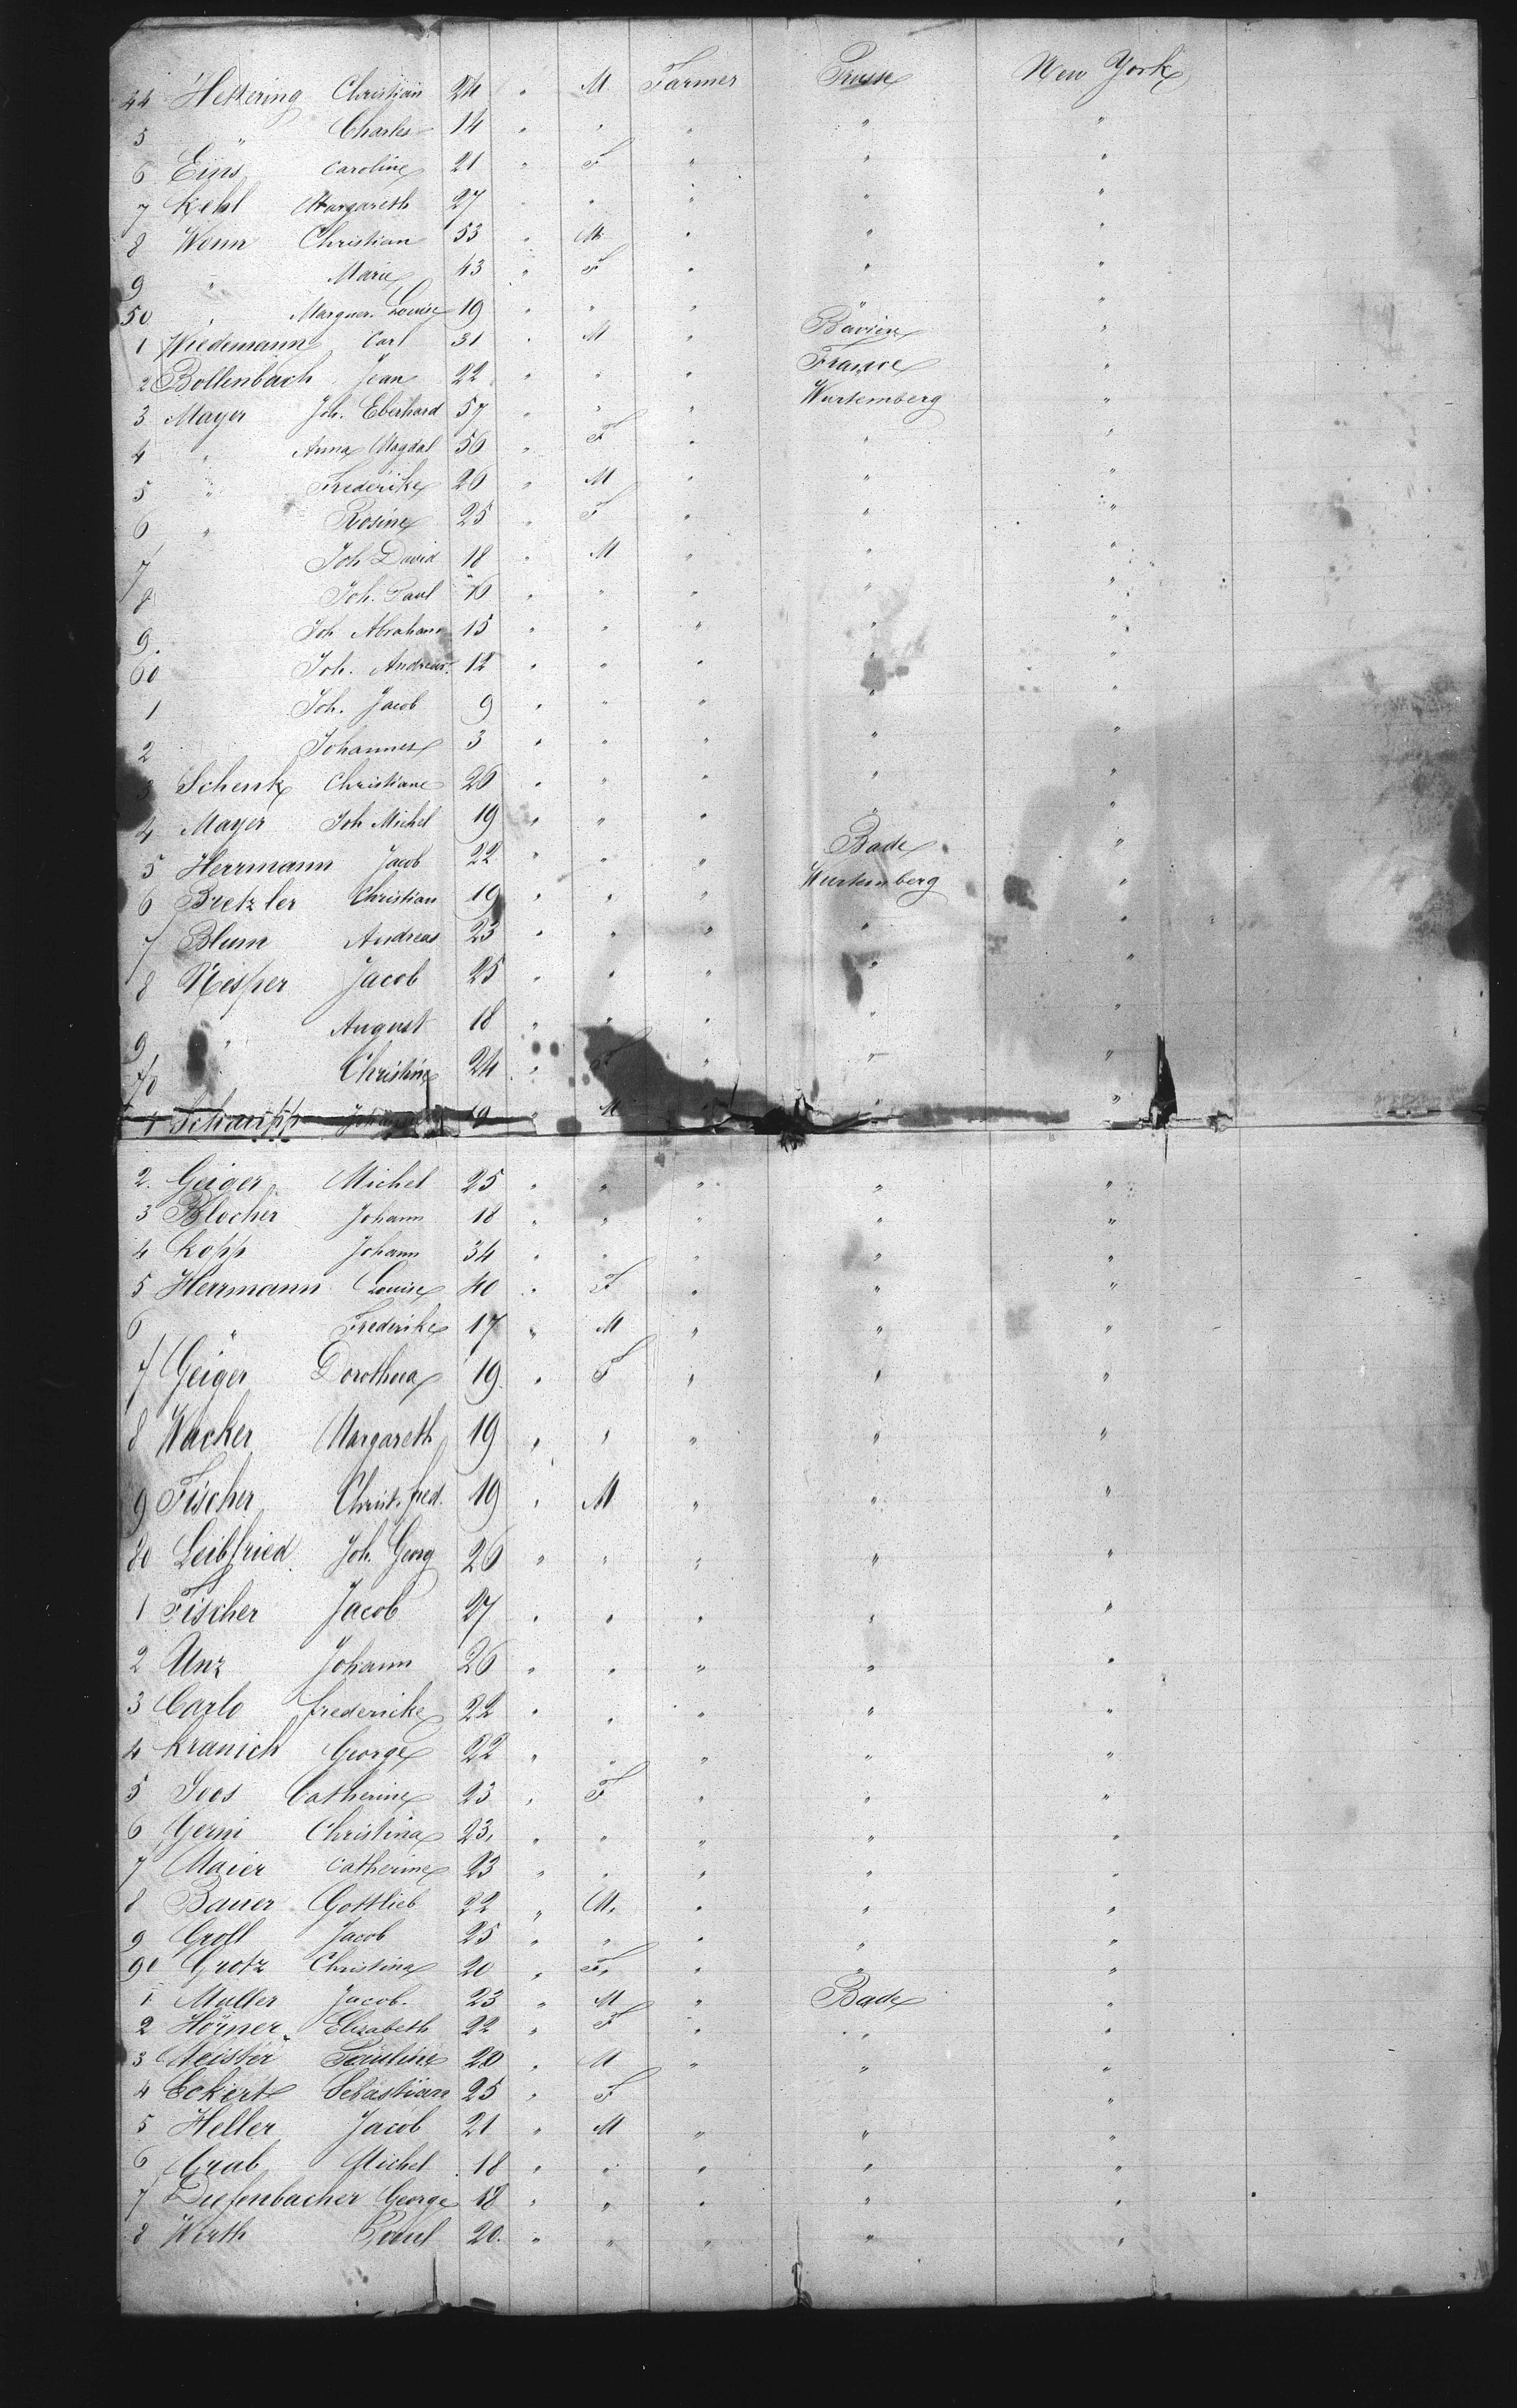 44 Hettering Christian 24 " M Farmer Prusse New York
5 " Charles 14 " " " " "
6 Eins Caroline 21 " F " " "
7 Kehl Margareth 27 " " " " "
8 Wenn Christian 53 " M " " "
9 " Marie 43 " F " " "
50 " Marguer. Louise 19 " " " " "
1 Wiedemann Carl 31 " M " Baviere "
2 Bollenbach Jean 22 " " " France "
3 Mayer Joh. Eberhard 57 " " " Wurtemberg "
4 " Anna Magdal 56 " F " " "
5 " Frederike 26 " M " " "
6 " Rosine 25 " F " " "
7 Joh David 18 " M " " "
8 Joh. Paul 16 " " " " "
9. Joh Abraham 15 " " " " "
60 Joh. Andreas. 12 " " " " "
1 Joh. Jacob 9 " " " " "
2 Johannes 3 " " " " "
3 Schenk Christiane 26 " " " " "
4 Mayer Joh Michel 19 " " " " "
5 Herrmann Jacob 22 " " " Bade "
6 Bretzler Christian 19 " " " Wurtemberg "
7 Blum Andreas 23 " " " " "
8 Nesper Jacob 25 " " " " "
9 " August 18 " " " " "
70 " Christine 24 " F " " "
1 Schaupp M " " "
2. Geiger Michel 25 " " " " "
3 Blocher Johann 18 " " " " "
4 Kopp Johann 34 " " " " "
5 Herrmann Louise 40 " F " " "
6 " Frederike 17 " M " " "
7 Geiger Dorothea 19 " F " " "
8 Wacker Margareth 19 " " " " "
9 Fischer Christ. fred. 19 " M " " "
80 Leibfried Joh. Georg 26 " " " " "
1 Fischer Jacob 27 " " " " "
2 Unz Johann 26 " " " " "
3 Carlo frederike 22 " " " " "
4 Kranich George 22 " " " " "
5 Joos Catherine 23 " F " " "
6 Gerni Christina 23. " " " " "
7 Maier Catherine 23 " " " " "
8 Bauer Gottlieb 22 " M. " " "
9 Groll Jacob 25 " " " " "
90 Grotz Christina 20 " F. " " "
1 Muller Jacob. 23 " M " Bade "
2 Hörner Elizabeth 22 " F " " "
3 Meister Pauline 20 " M " " "
4 Eckert Sebastian 25 " F "
5 Heller Jacob 21 " M " " "
6 Grab Michel 18 " " " " "
7 Diefenbacher George 18 " " " " "
8 Wirth Paul 20. " " " " "